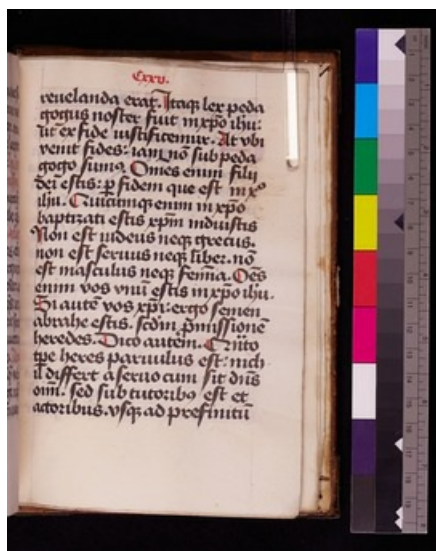 Cxxv.
reuelanda erat. Itaq; lex peda
gogus noster fuit in xpo ihu:
ut ex fide iustificemur. At vbi
venit fides: iam nō sub peda
gogo sumꝰ. Omēs enim filij
dei estis: ꝑ fidem que est in xº
ihu. Cuicumq; enim in xpo
baptizati estis xpm induistis
Non est iudeus neq; grecus.
non est seruus neq; liber. nō
est masculus neq; femīa. Oēs
enim vos vnū estis in xpo ihu.
Si autē vos xpi: ergo semen
abrahe estis. scdm ꝓmissionē
heredes. Dico autem. Quāto
tpe heres paruulus est: nich
il differt a seruo cum sit dn̄s
oim̄. sed sub tutoribꝰ est et
actoribus. vsq; ad prefinitū